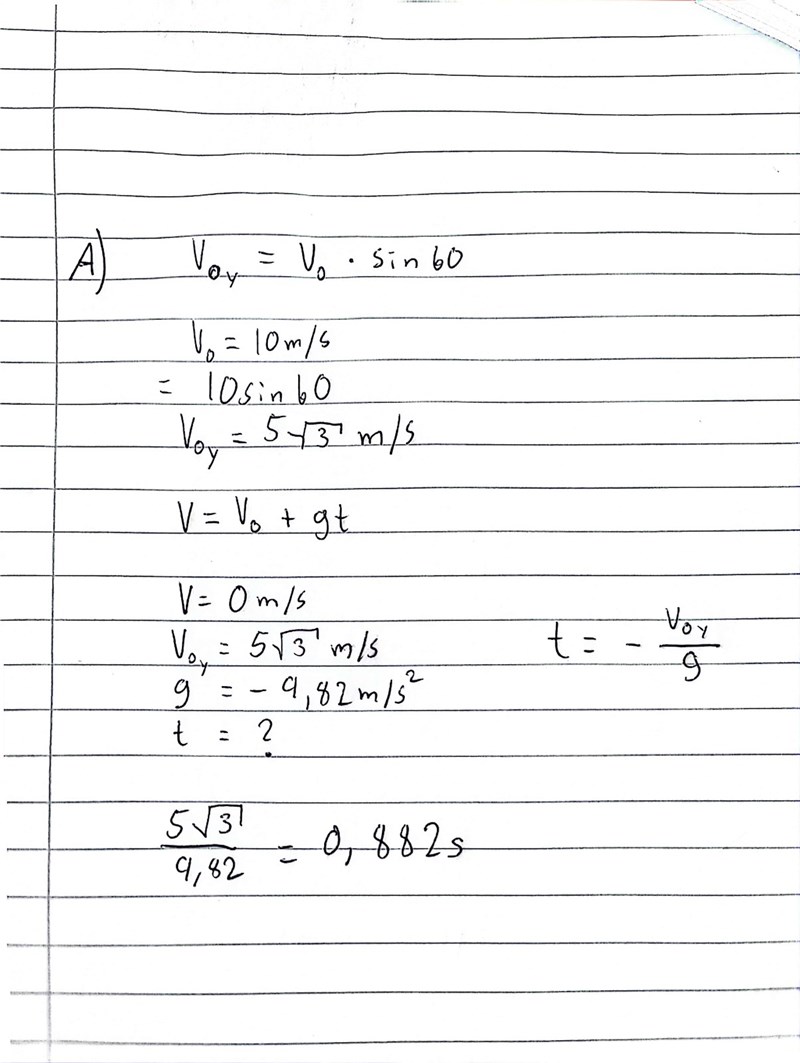 A) V₀y = V₀ · sin60
V₀ = 10 m/s
= 10sin60
V₀y = 5√3 m/s
V = V₀ + gt
V = 0 m/s
V₀y = 5√3 m/s
t = - V₀y/g
g = - 9,82 m/s²
t = ?
5√3/9,82 = 0,882s